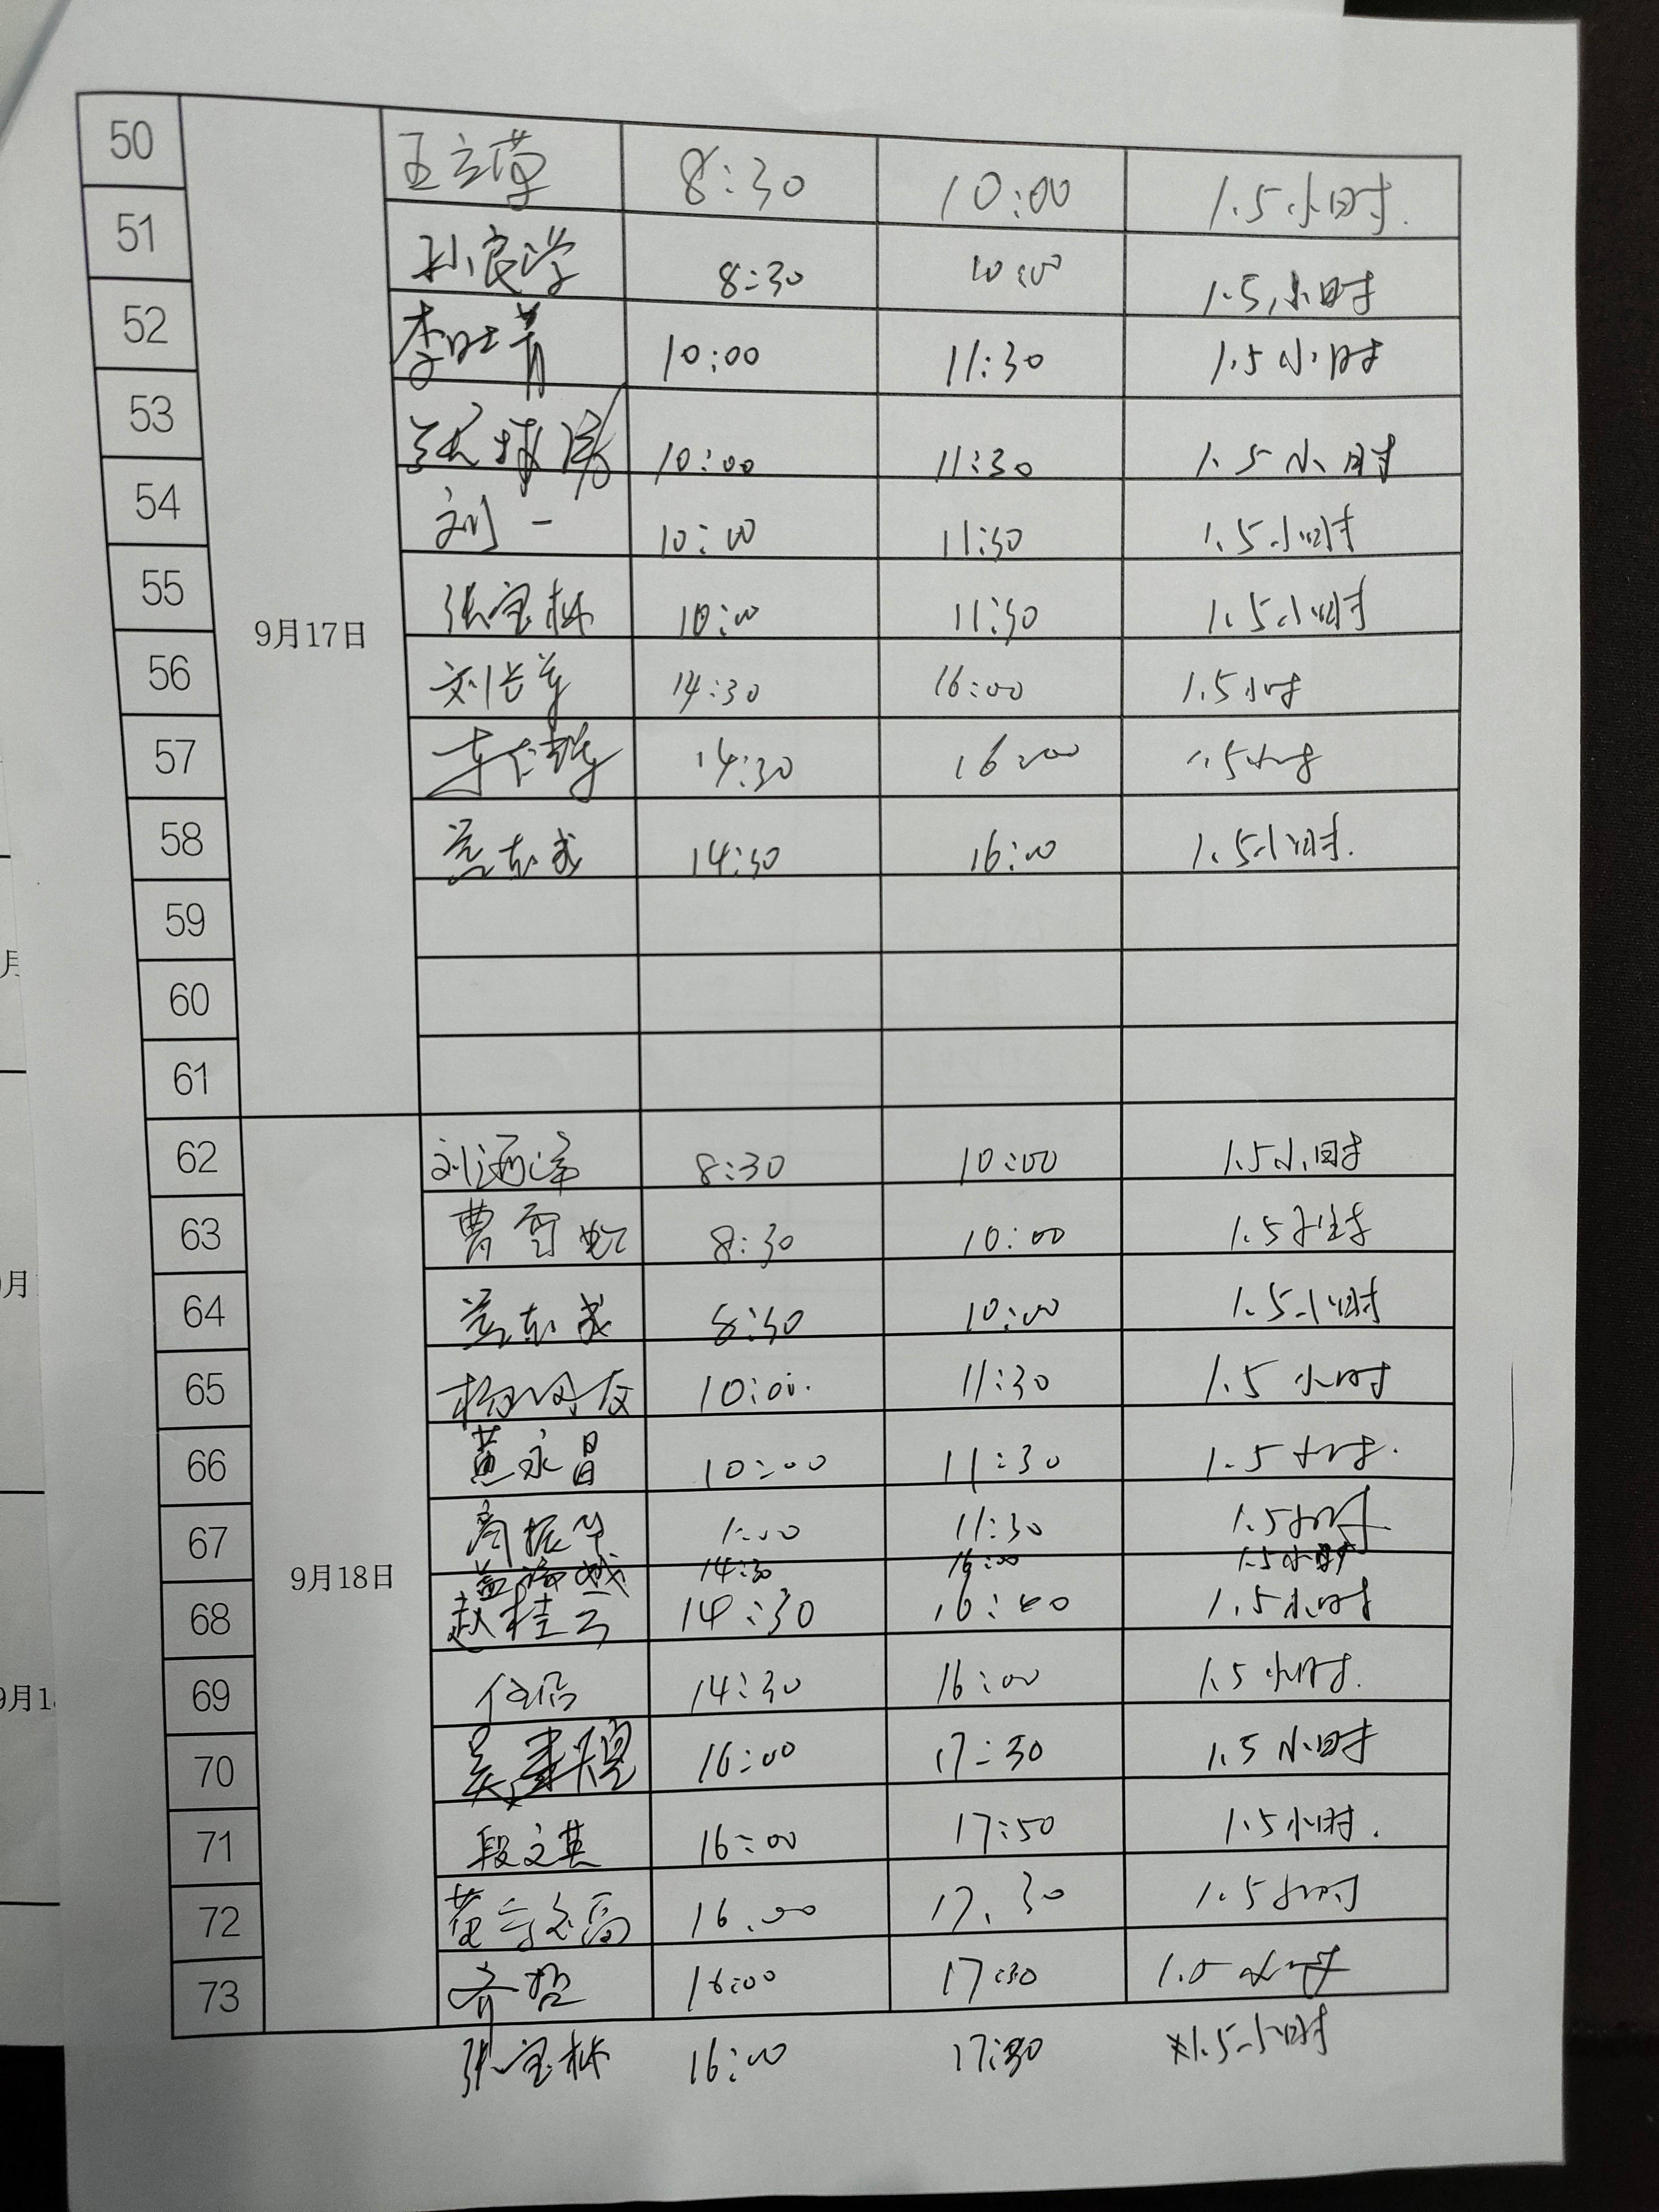 50 王立草 8:30 10:00 1.5小时.
51 孙良学 8:30 10:00 1.5小时
52 李 10:00 11:30 1.5小时
53 张 10:00 11:30 1.5小时
54 刘一 10:00 11:30 1.5小时
55 张宝林 10:00 11:30 1.5小时
9月17日
56 刘长 14:30 16:00 1.5小时
57 14:30 16:00 1.5小时
58 14:30 16:00 1.5小时.
59
60
61
62 刘 8:30 10:00 1.5小时
63 曹雪虹 8:30 10:00 1.5小时
64 8:30 10:00 1.5小时
65 杨 10:00. 11:30 1.5小时
66 黄永昌 10:00 11:30 1.5小时.
67 振华 1:00 11:30 1.5小时
14:30 16:00 1.5小时
9月18日
68 赵桂云 14:30 16:00 1.5小时
69 14:30 16:00 1.5小时.
70 吴 16:00 17:30 1.5小时
71 段文英 16:00 17:30 1.5小时.
72 黄 16.00 17.30 1.5小时
73 齐 16:00 17:30 1.5小时
张宝林 16:00 17:30 1.5小时